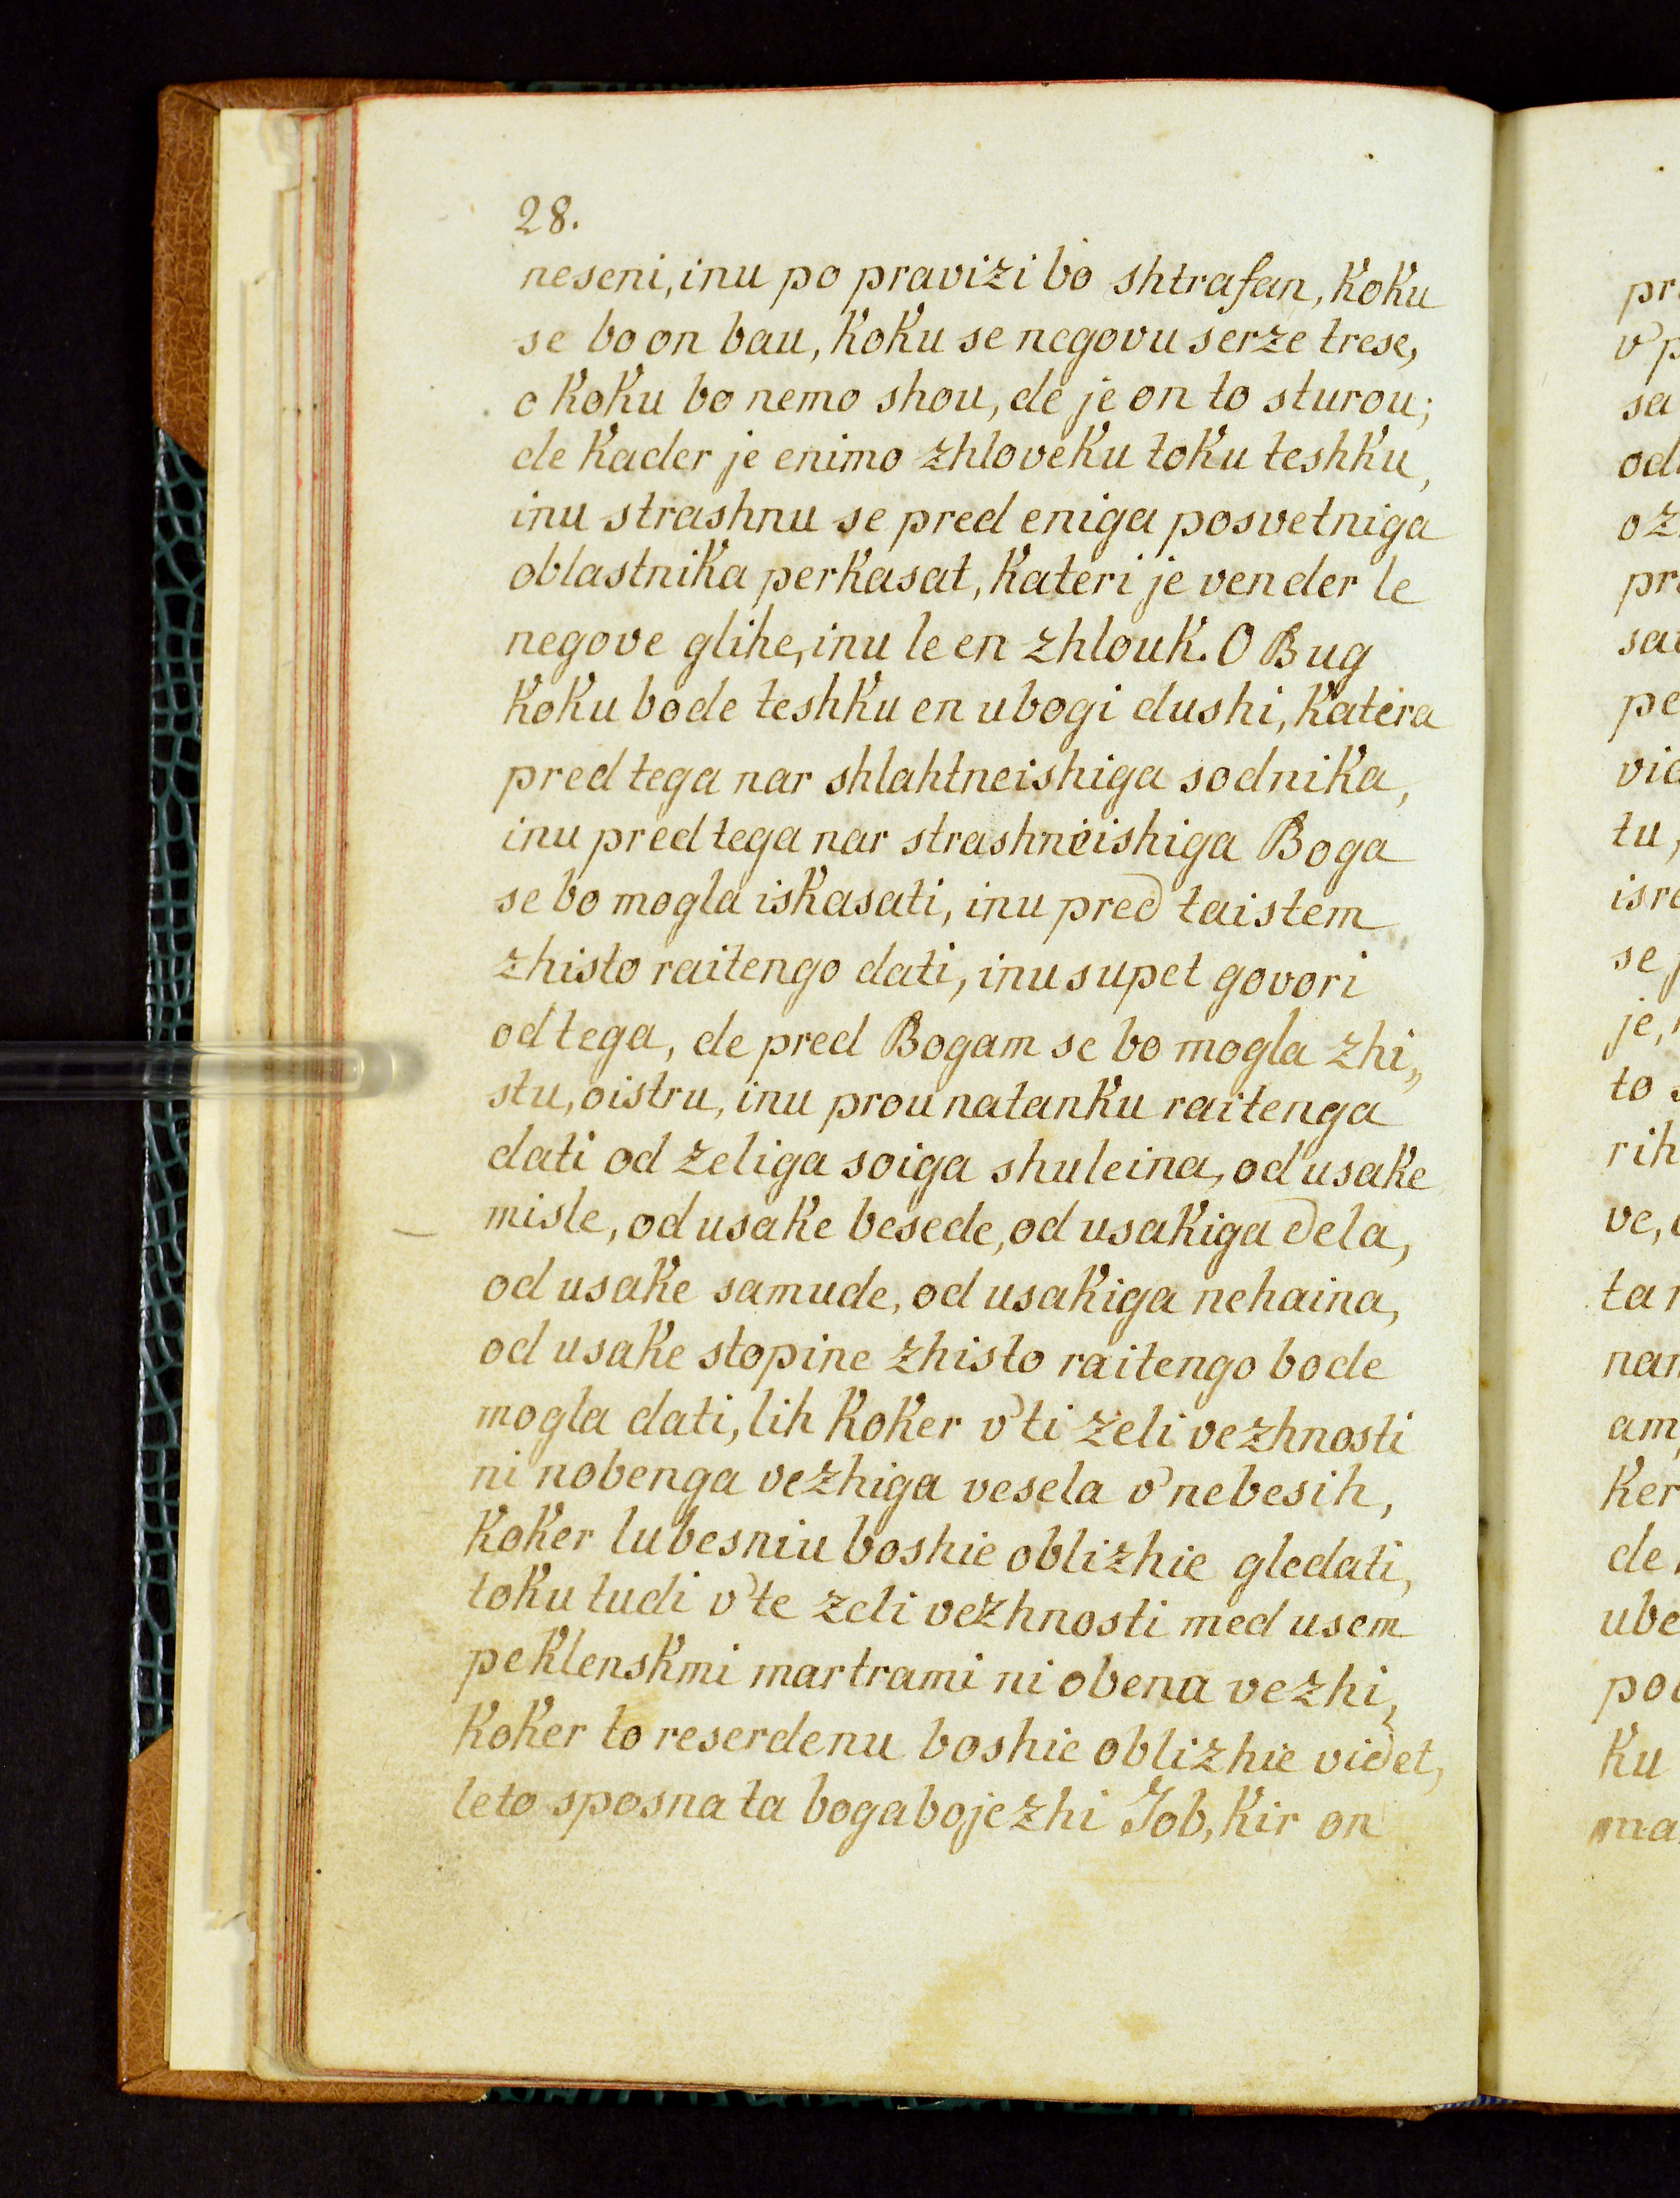 28.
neseni, inu po pravizi bo shtrafan, koku
se bo on bau, koku se negovu serze trese,
o koku bo nemo shou, de je on to sturou;
de kader je enimo zhloveku toku teshku,
inu strashnu se pred eniga posvetniga
oblastnika perkasat, kateri je vender le
negove glihe, inu le en zhlouk. O Bug
koku bode teshku en ubogi dushi, katera
pred tega nar shlahtneishiga sodnika,
inu pred tega nar strashneishiga Boga
se bo mogla iskasati, inu pred taistem
zhisto raitengo dati, inu supet govori
od tega, de pred Bogam se bo mogla zhi„
stu, oistru, inu prou natanku raitenga
dati od zeliga soiga shuleina, od usake
misle, od usake besede, od usakiga dela,
od usake samude, od usakiga nehaina,
od usake stopine zhisto raitengo bode
mogla dati, lih koker v' ti zeli vezhnosti
ni nobenga vezhiga vesela v' nebesih,
koker lubesniu boshie oblizhie gledati,
toku tudi v' te zeli vezhnosti med usem
peklenskmi martrami ni obena vezhi,
koker to reserdenu boshie oblizhie videt,
leto sposna ta bogabojezhi Job, kir on
pr
v' p
sa
od
oz
pr
sa
pe
vid
tu,
isre
se p
je,
to s
rih
ve,
ta
nan
am
ker
de
ube
pod
ku
ma